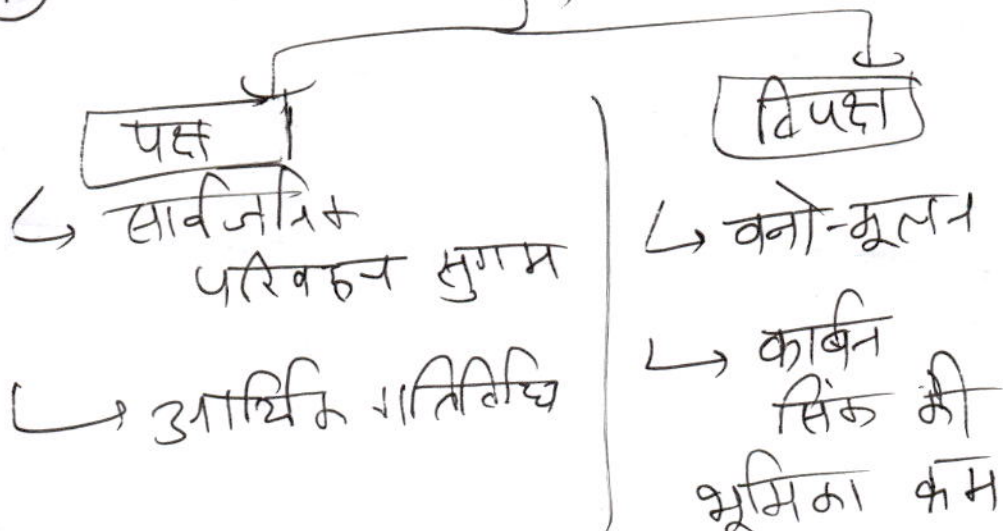 पक्ष
सार्वजनिक
परिवहन सुगम
आर्थिक गतिविधि
विपक्ष
वनोन्मूलन
कार्बन
सिंक की
भूमिका कम